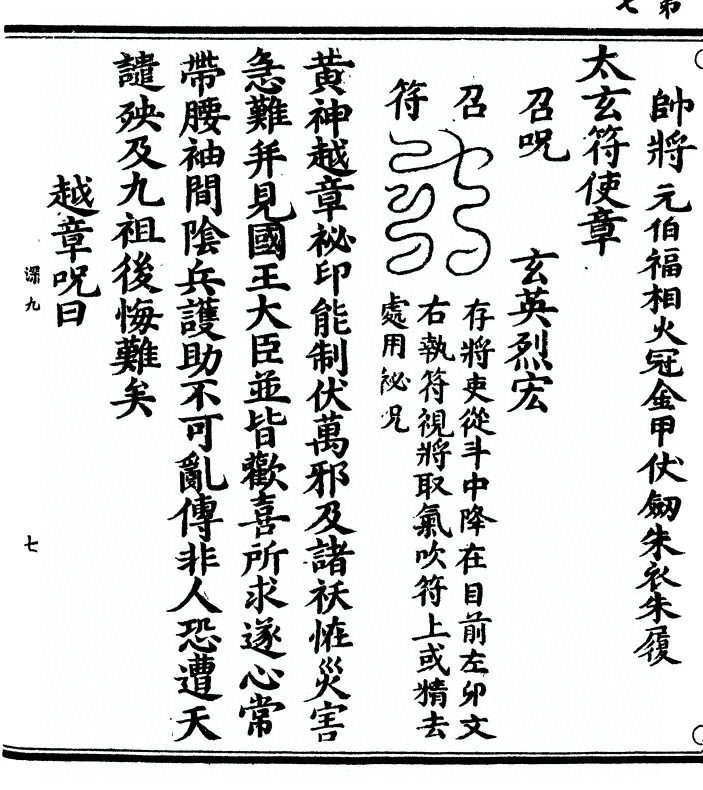 第
七
帥將元伯福相火冠金甲伏劒朱衣朱履
太玄符使章
召呪　玄英烈宏
召符
存將吏從斗中降在目前左卯文
右執符視將取氣吹符上或精去
處用祕呪
黃神越章祕印能制伏萬邪及諸祅恠災害
急難并見國王大臣並皆歡喜所求遂心常
帶腰袖間陰兵護助不可亂傳非人恐遭天
譴殃及九祖後悔難矣
越章呪曰
深九
七